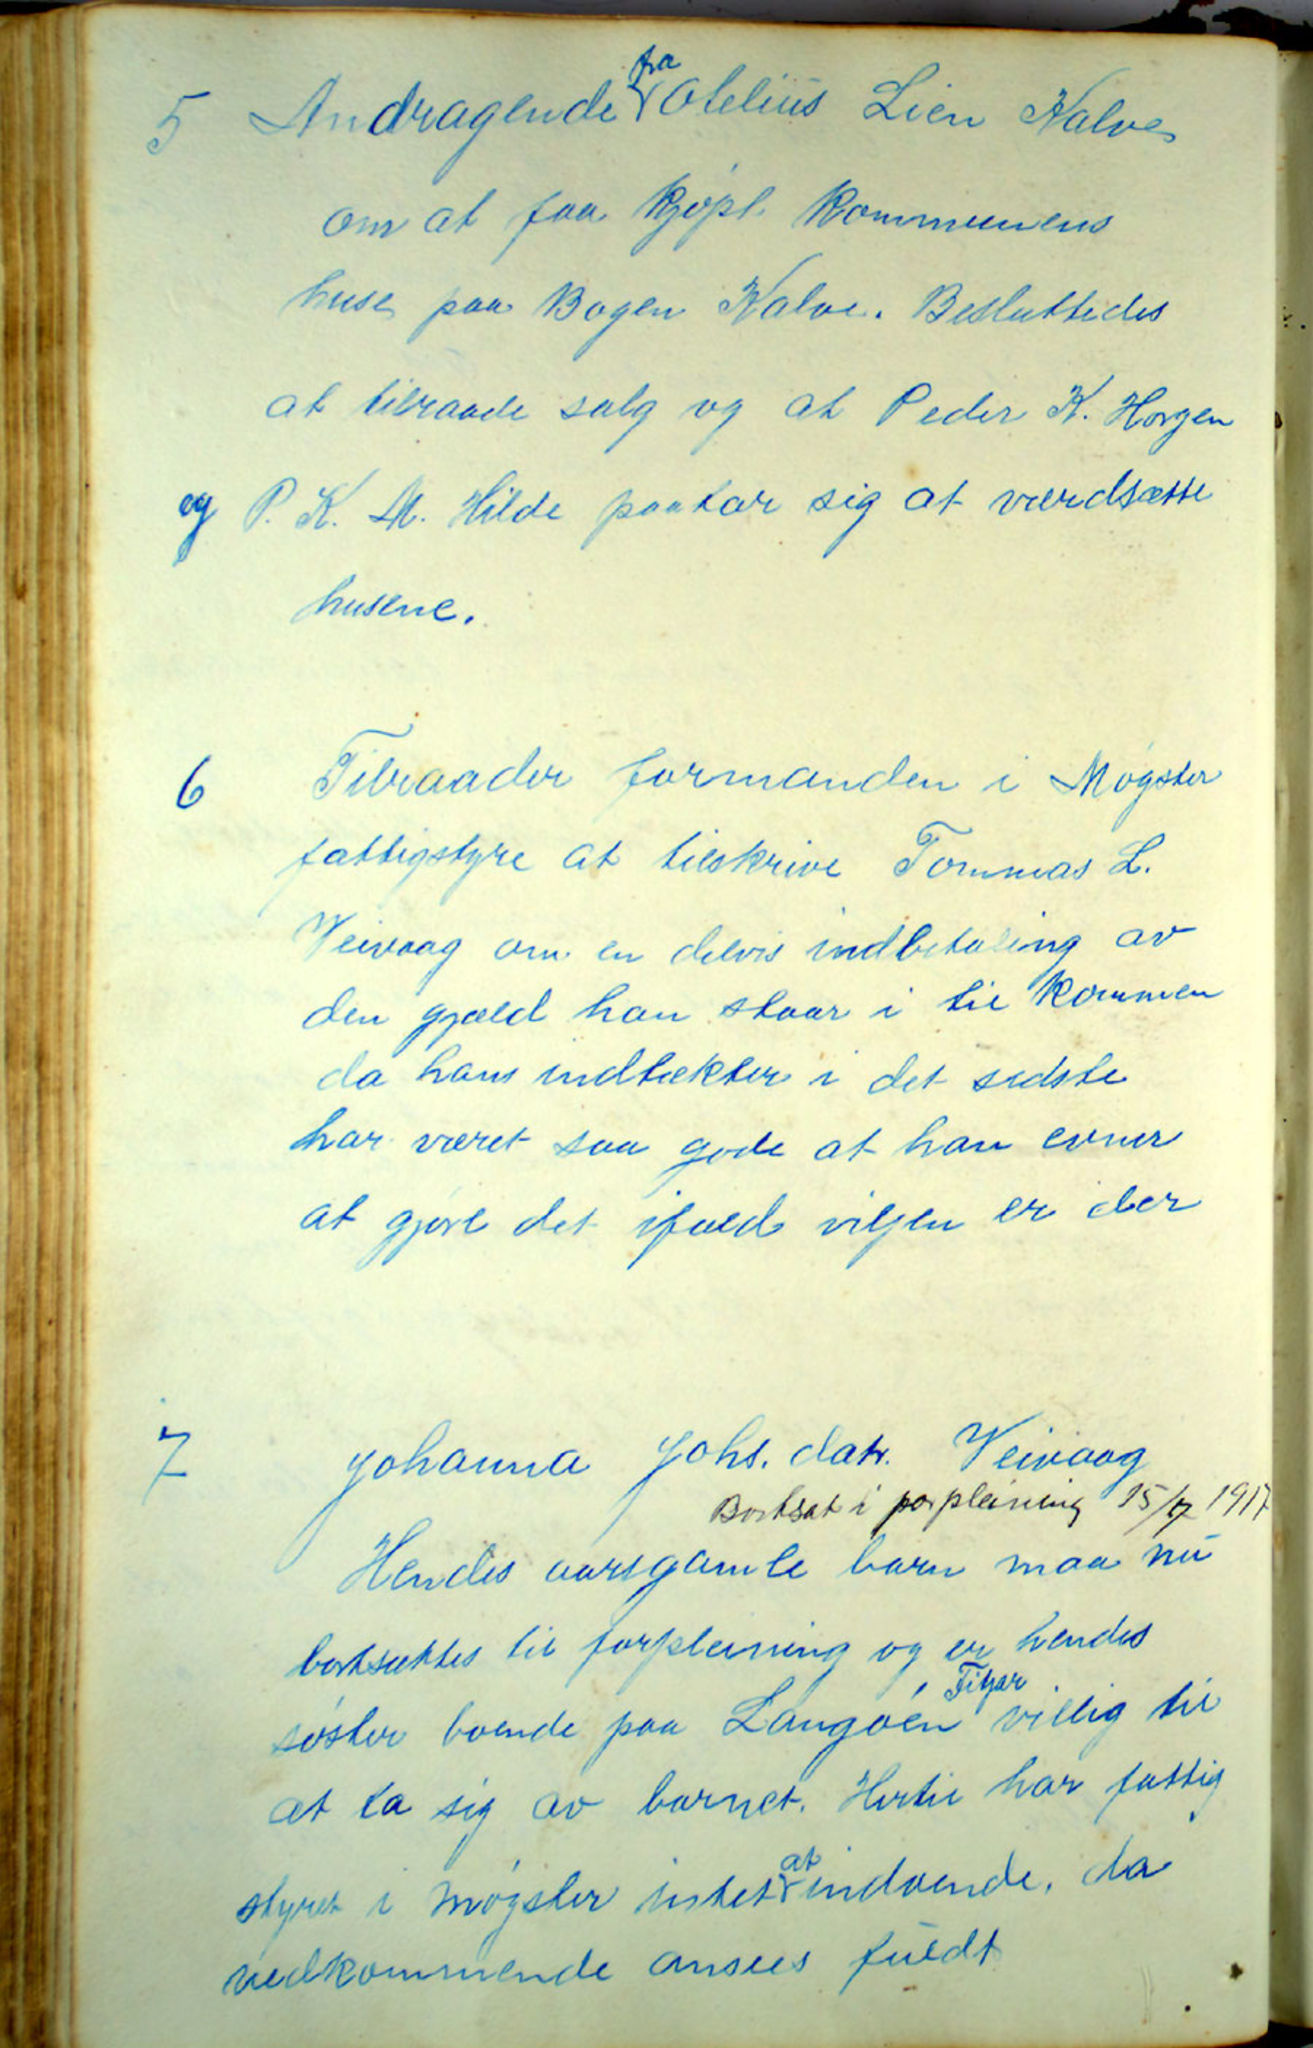 5 Andragende fra Olelius Lien Kalve
om at faa kjøpt kommunens
huse paa Bogen Kalve. Besluttedes
at tilraade salg og at Peder K. Horgen
og P. K. M. Hilde paatar sig at værdsætte
husene.
6 Tilraader formanden i Møgster
fattigstyre at tilskrive Tommas L.
Veivaag om en delvis indbetaling av
den gjæld han staar i til kommen
da hans indtækter i det sidste
har været saa gode at han evner
at gjøre det ifald viljen er der
7 Johanna Johs. datr. Veivaag
Bortsat i forpleining 15/7 1917
Hendes aarsgamle barn maa nu
bortsættes til forpleining og er hendes
søster boende paa Langøen Fitjar villig til
at ta sig av barnet. Hertil har fattig
styret i Møgster intet at indvende, da
vedkommende ansees fuldt